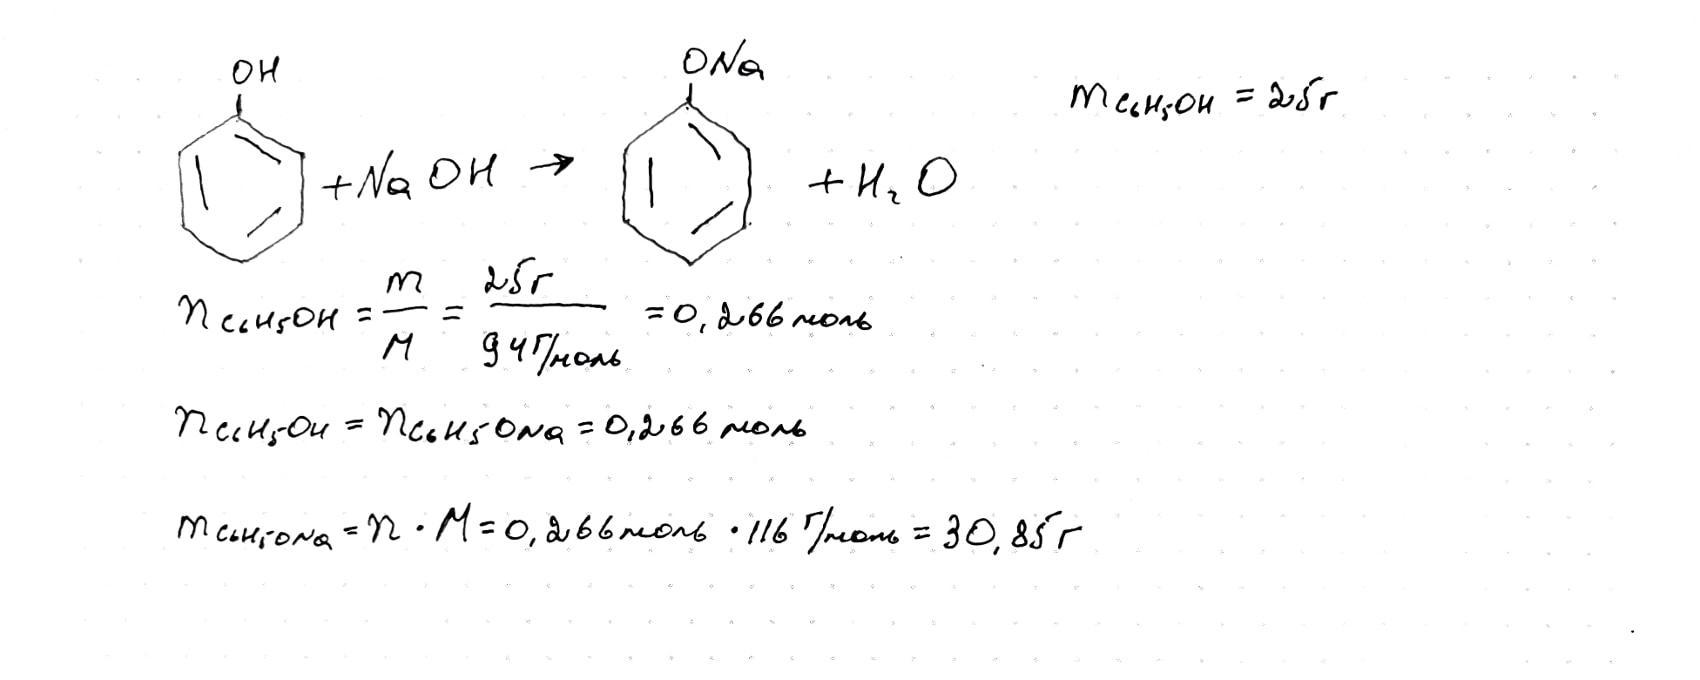 OH ONa m C₆H₅OH = 25г
+ NaOH → + H₂O
n C₆H₅OH = m/M = 25г/94г/моль = 0,266 моль
n C₆H₅OH = n C₆H₅ONa = 0,266 моль
m C₆H₅ONa = n · M = 0,266 моль · 116 г/моль = 30,85г